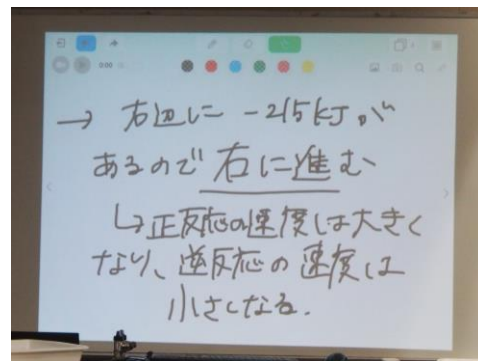 0:00
→ 右辺に -215kJが
あるので右に進む
↳正反応の速度は大きく
なり、逆反応の速度は
小さくなる.